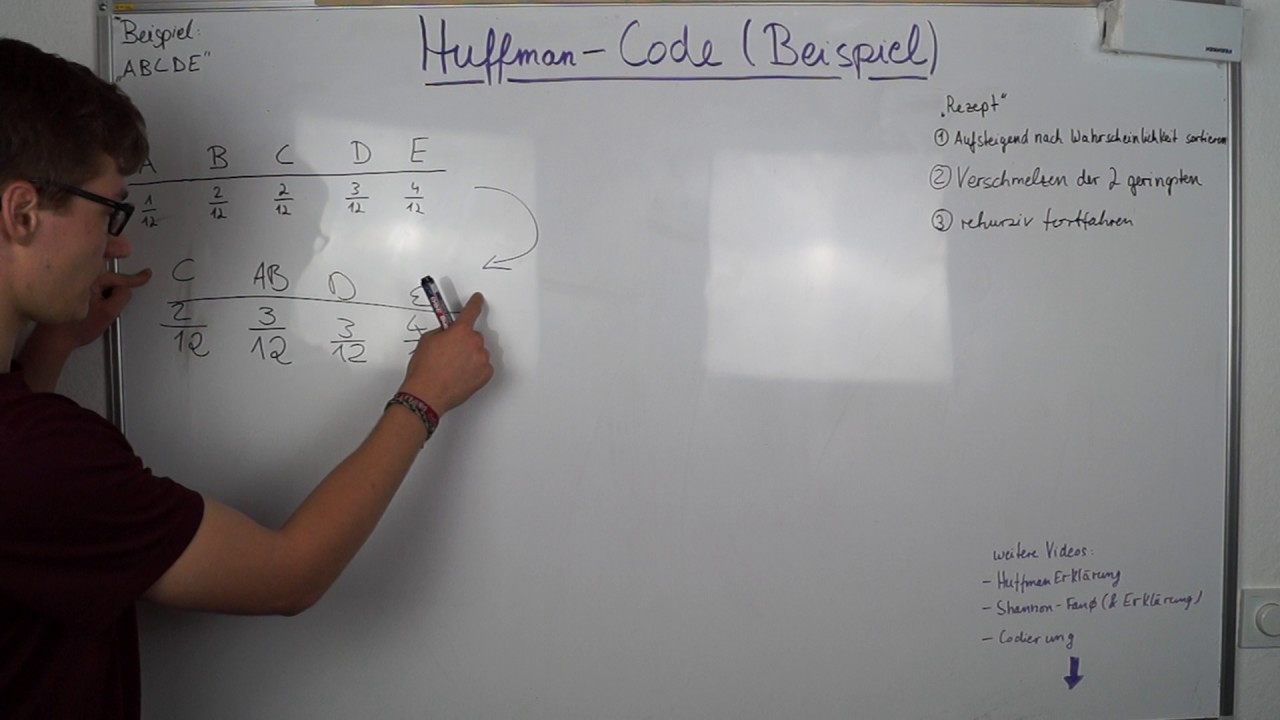 "Beispiel:
„ABCDE"
Huffman-Code (Beispiel)
A B C D E
1/12 2/12 2/12 3/12 4/12
C AB D E
2/12 3/12 3/12 4
„Rezept"
① Aufsteigend nach Wahrscheinlichkeit sortieren
② Verschmelzen der 2 geringsten
③ rekursiv fortfahren
weitere Videos:
- Huffman Erklärung
- Shannon-Fano (& Erklärung)
- Codierung